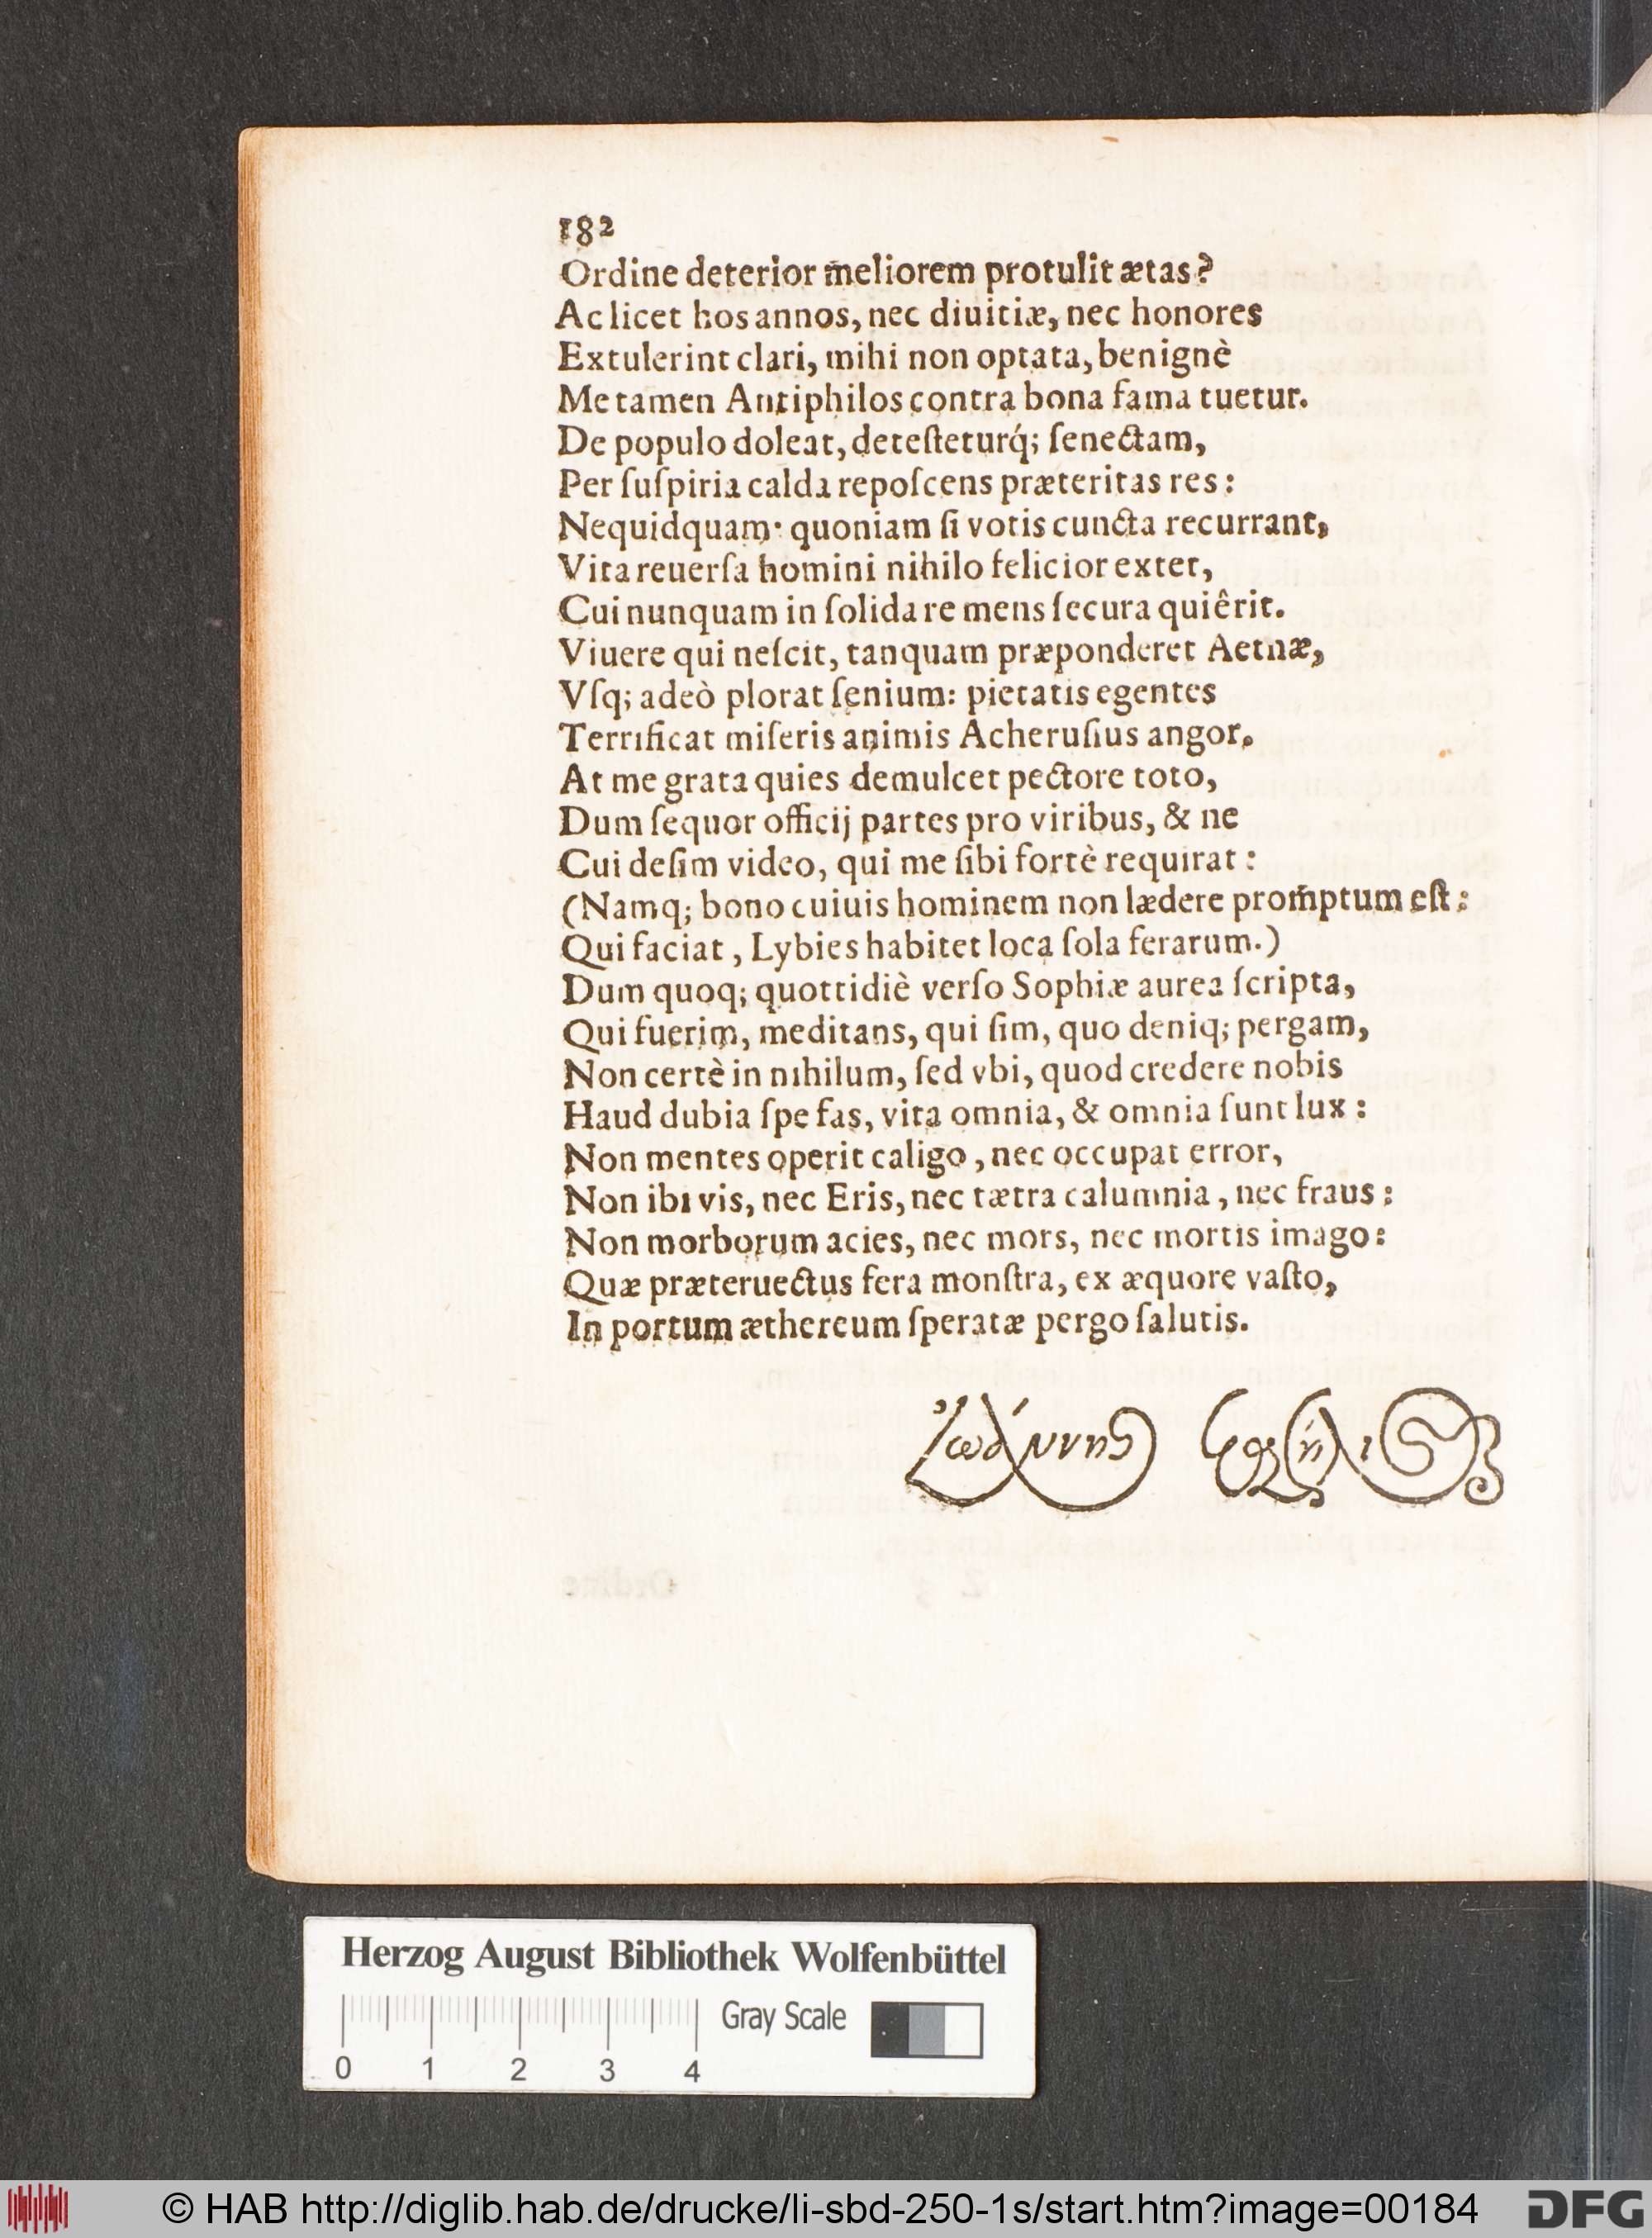 182
Ordine deterior meliorem protulit ætas?
Ac licet hos annos, nec diuitiæ, nec honores
Extulerint clari, mihi non optata, benignè
Me tamen Antiphilos contra bona fama tuetur.
De populo doleat, deteſteturq́; ſenectam,
Per ſuſpiria calda repoſcens præteritas res:
Nequidquam: quoniam ſi votis cuncta recurrant,
Vita reuerſa homini nihilo felicior extet,
Cui nunquam in ſolida re mens ſecura quiêrit.
Viuere qui neſcit, tanquam præponderet Aetnæ,
Vſq; adeò plorat ſenium: pietatis egentes
Terrificat miſeris animis Acheruſius angor.
At me grata quies demulcet pectore toto,
Dum ſequor officij partes pro viribus, & ne
Cui deſim video, qui me ſibi fortè requirat:
(Namq; bono cuiuis hominem non lædere promptum eſt:
Qui faciat, Lybies habitet loca ſola ferarum.)
Dum quoq; quottidiè verſo Sophiæ aurea ſcripta,
Qui fuerim, meditans, qui ſim, quo deniq; pergam,
Non certè in nihilum, ſed vbi, quod credere nobis
Haud dubia ſpe fas, vita omnia, & omnia ſunt lux:
Non mentes operit caligo, nec occupat error,
Non ibi vis, nec Eris, nec tætra calumnia, nec fraus:
Non morborum acies, nec mors, nec mortis imago:
Quæ præteruectus fera monſtra, ex æquore vaſto,
In portum æthereum ſperatæ pergo ſalutis.
Ἰωάννης
Herzog August Bibliothek Wolfenbüttel
Gray Scale
0 1 2 3 4
© HAB http://diglib.hab.de/drucke/li-sbd-250-1s/start.htm?image=00184
DFG